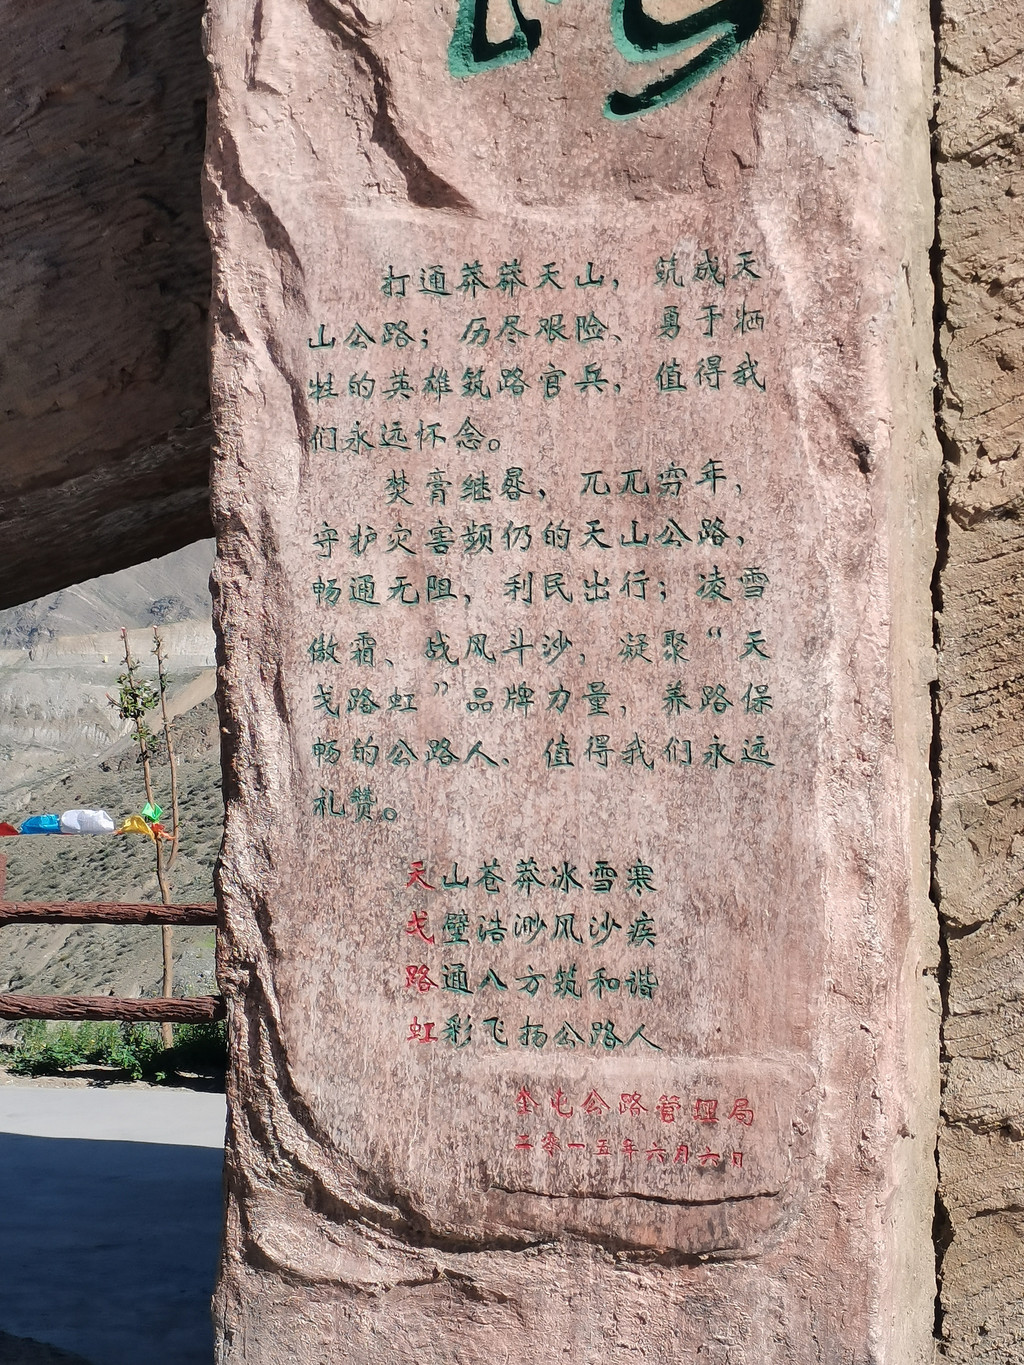 打通莽莽天山，筑成天
山公路；历尽艰险、勇于牺
牲的英雄筑路官兵，值得我
们永远怀念。
焚膏继晷，兀兀穷年，
守护灾害频仍的天山公路，
畅通无阻，利民出行；凌雪
傲霜、战风斗沙，凝聚“天
戈路虹”品牌力量，养路保
畅的公路人．值得我们永远
礼赞。
天山苍莽冰雪寒
戈壁浩渺风沙疾
路通八方筑和谐
虹彩飞扬公路人
公路管理局
二零一五年六月六日